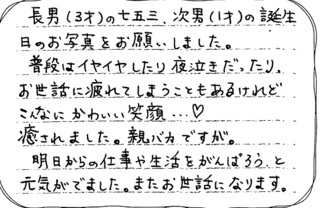 長男(3才)の七五三、次男(1才)の誕生
日のお写真をお願いしました。
普段はイヤイヤしたり夜泣きだったり、
お世話に疲れてしまうこともあるけれど
こんなにかわいい笑顔…♡
癒されました。親バカですが。
明日からの仕事や生活をがんばろう、と
元気がでました。またお世話になります。